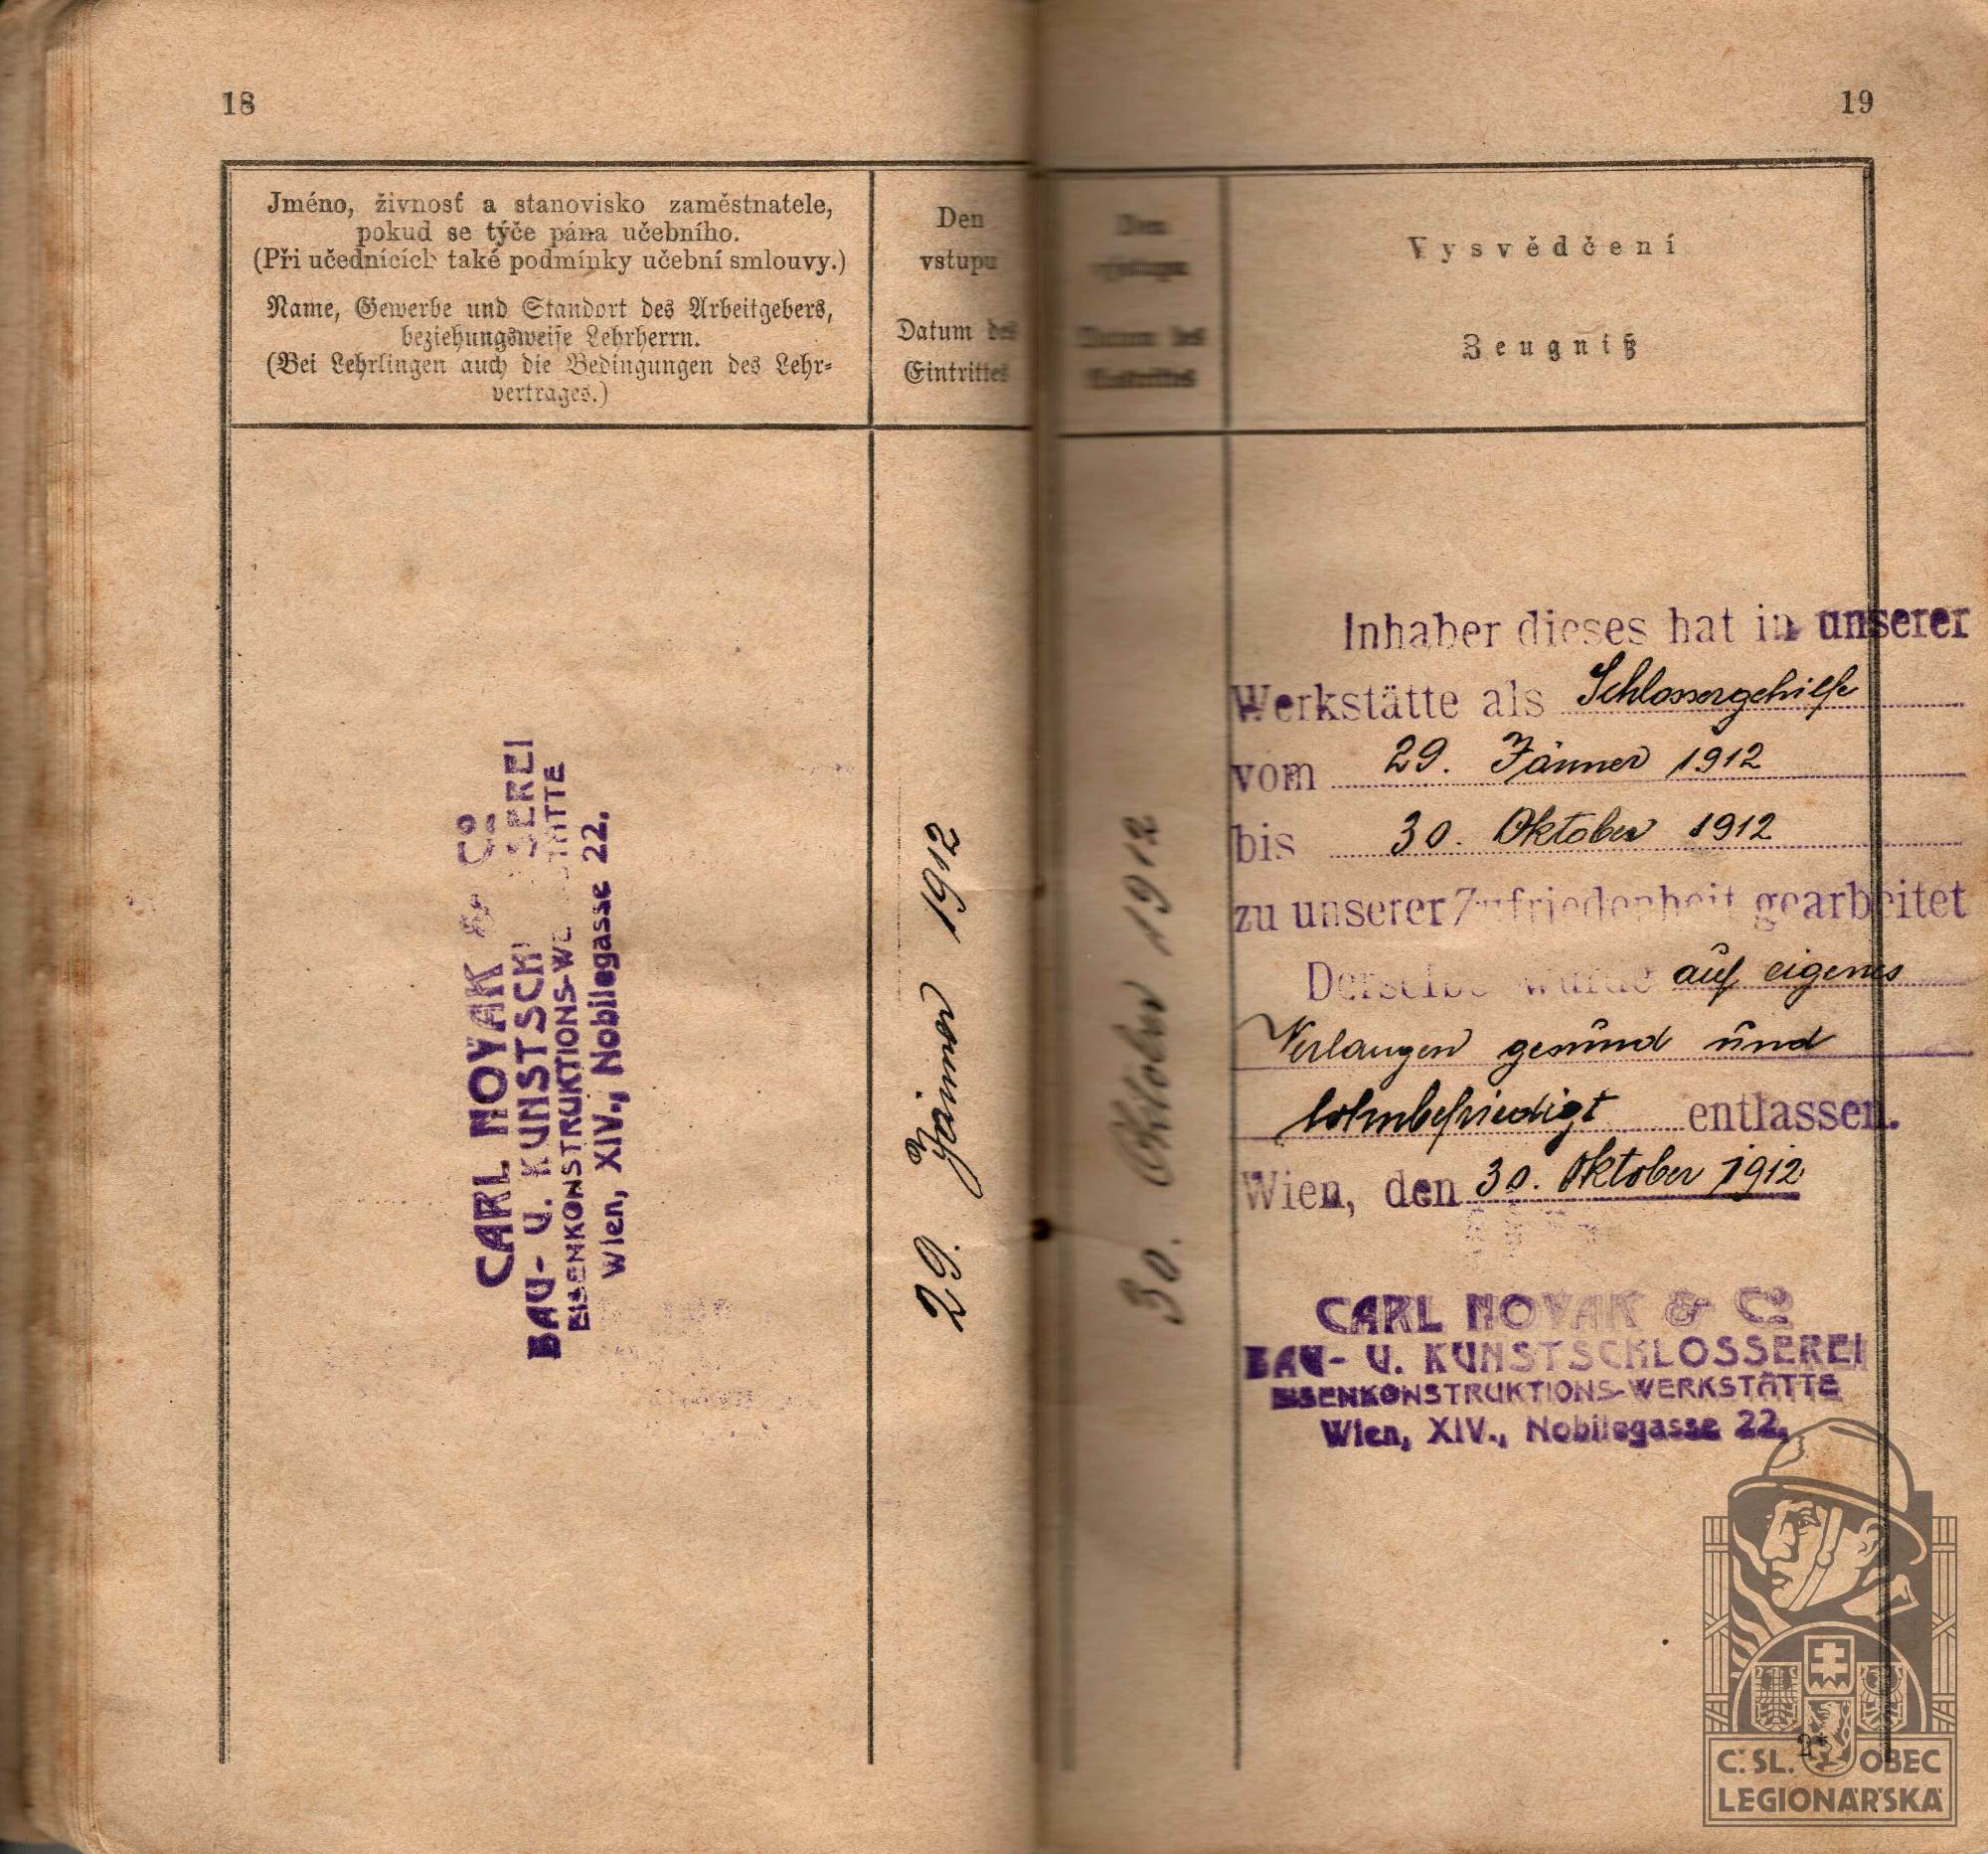 18
Jméno, živnosť a stanovisko zaměstnatele,
pokud se týče pána učebního.
(Při učednících také podmínky učební smlouvy.)
Name, Gewerbe und Standort des Arbeitgebers,
beziehungsweise Lehrherrn.
(Bei Lehrlingen auch die Bedingungen des Lehr-
vertrages.)
Den
vstupu
Datum des
Eintrittes
CARL NOVAK & Co
BAU- U. KUNSTSCH SEREI
EISENKONSTRUKTIONS-WE TÄTTE
Wien, XIV., Nobilegasse 22.
29. Jänner 1912
19
Den
výstupu
Datum des
Austrittes
Vysvědčení
Zeugniß
30. Oktober 1912
Inhaber dieses hat in unserer
Werkstätte als Schlossergehilfe
vom 29. Jänner 1912
bis 30. Oktober 1912
zu unserer Zufriedenheit gearbeitet
Derselbe wurde auf eigenes
Verlangen gesund und
lohnbefriedigt entlassen.
Wien, den 30. Oktober 1912
CARL NOVAK & Co
BAU- U. KUNSTSCHLOSSEREI
EISENKONSTRUKTIONS-WERKSTÄTTE
Wien, XIV., Nobilegasse 22.
2*
Č. SL. OBEC
LEGIONÁŘSKÁ